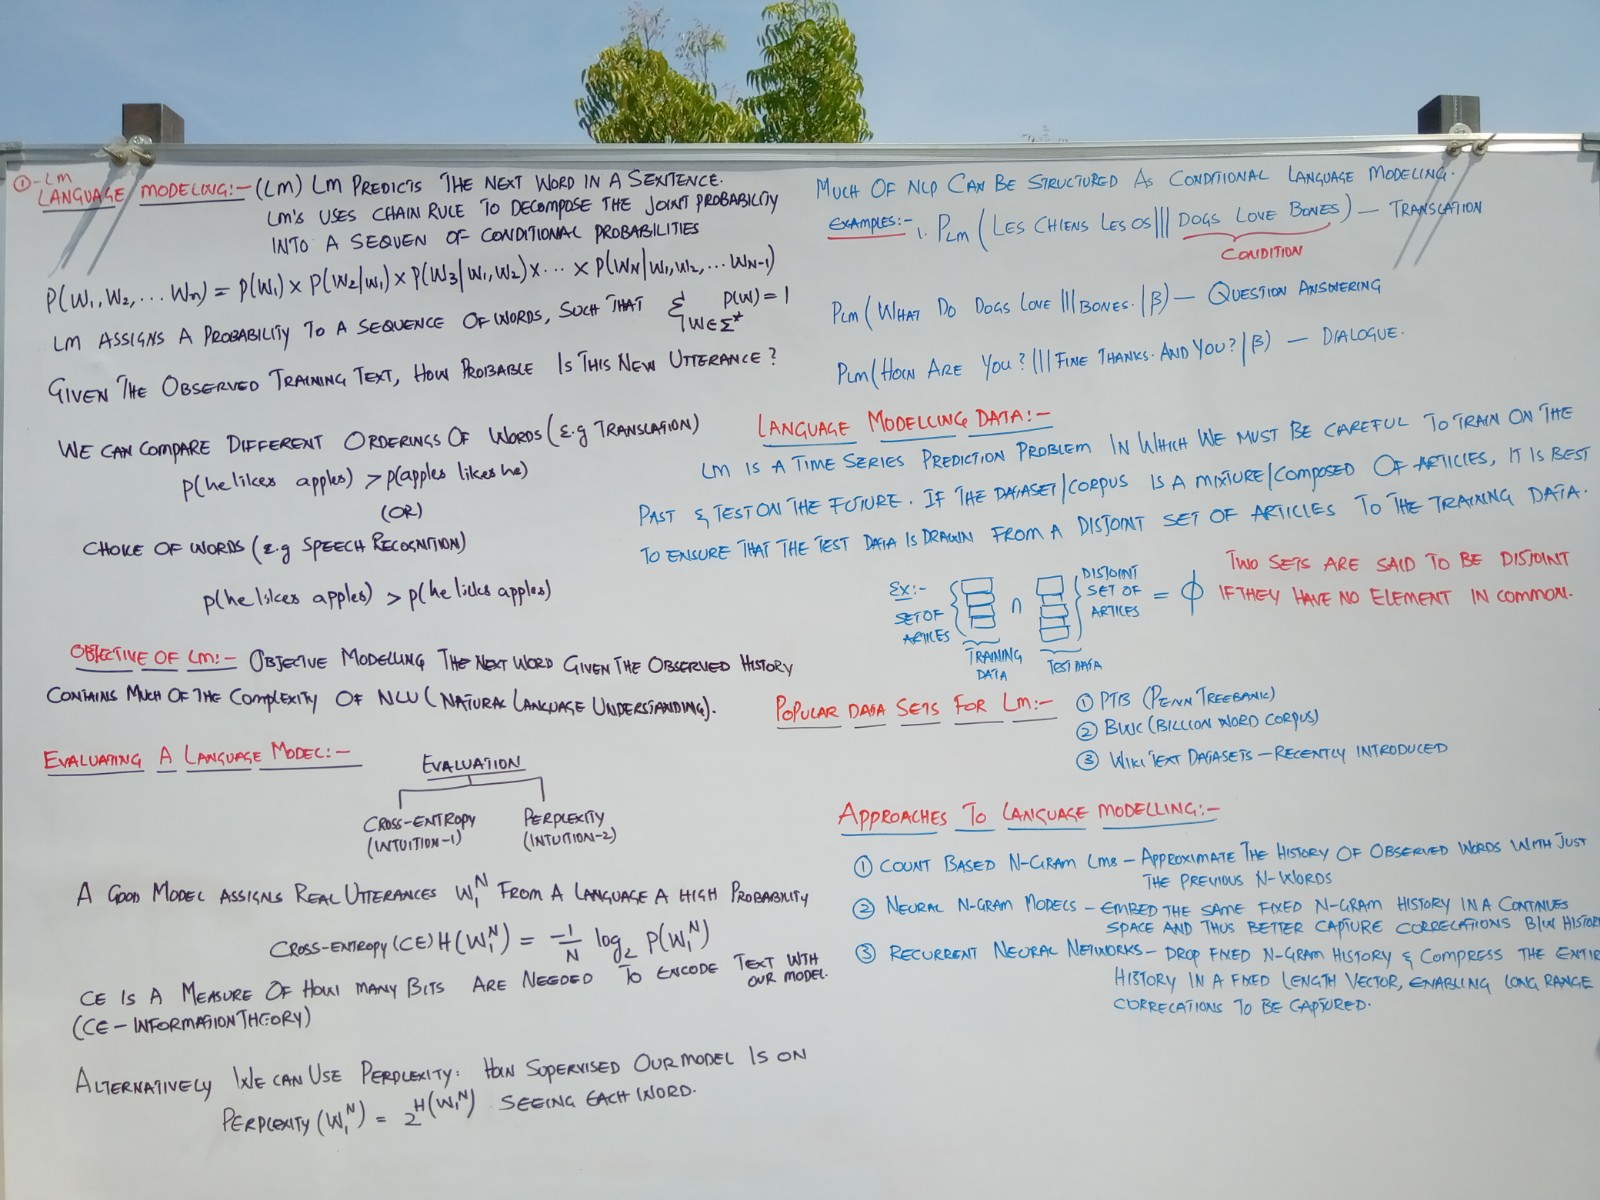 ①-LM
LANGUAGE MODELING:- (LM) LM PREDICTS THE NEXT WORD IN A SENTENCE.
LM'S USES CHAIN RULE TO DECOMPOSE THE JOINT PROBABILITY
INTO A SEQUEN OF CONDITIONAL PROBABILITIES
P(W₁, W₂, ... Wn) = P(W₁) × P(W₂|W₁) × P(W₃|W₁, W₂) × ... × P(WN|W₁, W₂, ... WN-1)
LM ASSIGNS A PROBABILITY TO A SEQUENCE OF WORDS, SUCH THAT Σ P(W) = 1
W∈Σ*
GIVEN THE OBSERVED TRAINING TEXT, HOW PROBABLE IS THIS NEW UTTERANCE?
WE CAN COMPARE DIFFERENT ORDERINGS OF WORDS (E.g TRANSLATION)
P(he likes apples) > P(apples likes he)
(OR)
CHOICE OF WORDS (E.g SPEECH RECOGNITION)
P(he likes apples) > P(he licks apples)
OBJECTIVE OF LM:- OBJECTIVE MODELLING THE NEXT WORD GIVEN THE OBSERVED HISTORY
CONTAINS MUCH OF THE COMPLEXITY OF NLU (NATURAL LANGUAGE UNDERSTANDING).
EVALUATING A LANGUAGE MODEL:-
EVALUATION
CROSS-ENTROPY PERPLEXITY
(INTUITION-1) (INTUITION-2)
A GOOD MODEL ASSIGNS REAL UTTERANCES W₁ᴺ FROM A LANGUAGE A HIGH PROBABILITY
CROSS-ENTROPY (CE) H(W₁ᴺ) = -1/N log₂ P(W₁ᴺ)
CE IS A MEASURE OF HOW MANY BITS ARE NEEDED TO ENCODE TEXT WITH
OUR MODEL.
(CE - INFORMATION THEORY)
ALTERNATIVELY WE CAN USE PERPLEXITY: HOW SUPERVISED OUR MODEL IS ON
PERPLEXITY (W₁ᴺ) = 2^H(W₁ᴺ) SEEING EACH WORD.
MUCH OF NLP CAN BE STRUCTURED AS CONDITIONAL LANGUAGE MODELING.
EXAMPLES:- 1. PLM (LES CHIENS LES OS ||| DOGS LOVE BONES) - TRANSLATION
CONDITION
PLM (WHAT DO DOGS LOVE ||| BONES. | β) - QUESTION ANSWERING
PLM (HOW ARE YOU? ||| FINE THANKS. AND YOU? | β) - DIALOGUE.
LANGUAGE MODELLING DATA:-
LM IS A TIME SERIES PREDICTION PROBLEM IN WHICH WE MUST BE CAREFUL TO TRAIN ON THE
PAST & TEST ON THE FUTURE. IF THE DATASET/CORPUS IS A MIXTURE/COMPOSED OF ARTICLES, IT IS BEST
TO ENSURE THAT THE TEST DATA IS DRAWN FROM A DISJOINT SET OF ARTICLES TO THE TRAINING DATA.
EX:-
SET OF
ARTICES
TRAINING
DATA
∩
TEST DATA
DISTOINT
SET OF
ARTICES
= ϕ
TWO SETS ARE SAID TO BE DISJOINT
IF THEY HAVE NO ELEMENT IN COMMON.
POPULAR DATA SETS FOR LM:- ① PTB (PENN TREEBANK)
② BWC (BILLION WORD CORPUS)
③ WIKI TEXT DATASETS - RECENTLY INTRODUCED
APPROACHES TO LANGUAGE MODELLING:-
① COUNT BASED N-GRAM LMs - APPROXIMATE THE HISTORY OF OBSERVED WORDS WITH JUST
THE PREVIOUS N-WORDS
② NEURAL N-GRAM MODELS - EMBED THE SAME FIXED N-GRAM HISTORY IN A CONTINUES
SPACE AND THUS BETTER CAPTURE CORRELATIONS B/W HISTOR
③ RECURRENT NEURAL NETWORKS - DROP FIXED N-GRAM HISTORY & COMPRESS THE ENTIR
HISTORY IN A FIXED LENGTH VECTOR, ENABLING LONG RANGE
CORRELATIONS TO BE CAPTURED.